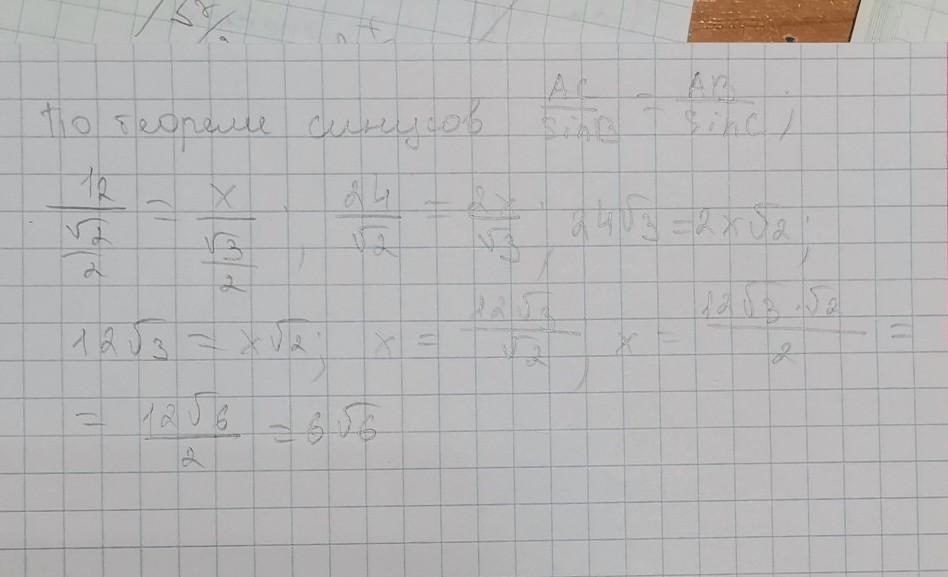 По теореме синусов AC/sinB = AB/sinC;
12/(√2/2) = x/(√3/2); 24/√2 = 2x/√3; 24√3 = 2x√2;
12√3 = x√2; x = 12√3/√2; x = 12√3·√2/2 =
= 12√6/2 = 6√6